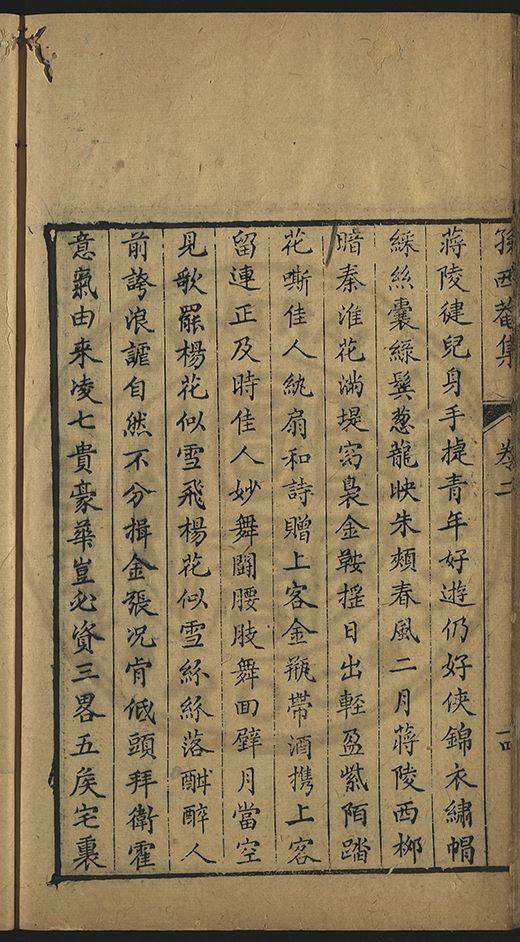 孫西菴集 卷二
蔣陵徤兒身手捷青年好遊仍好俠錦衣繡帽
綵絲囊綠鬂葱蘢映朱頰春風二月蔣陵西栁
暗秦淮花滿堤窈裊金鞍揺日出輕盈紫陌踏
花嘶佳人紈扇和詩贈上客金瓶帶酒携上客
留連正及時佳人妙舞闘腰肢舞回璧月當空
見歌罷楊花似雪飛楊花似雪絲絲落酣醉人
前誇浪謔自然不分揖金張况肯低頭拜衛霍
意氣由来凌七貴豪華豈必資三畧五矦宅裏